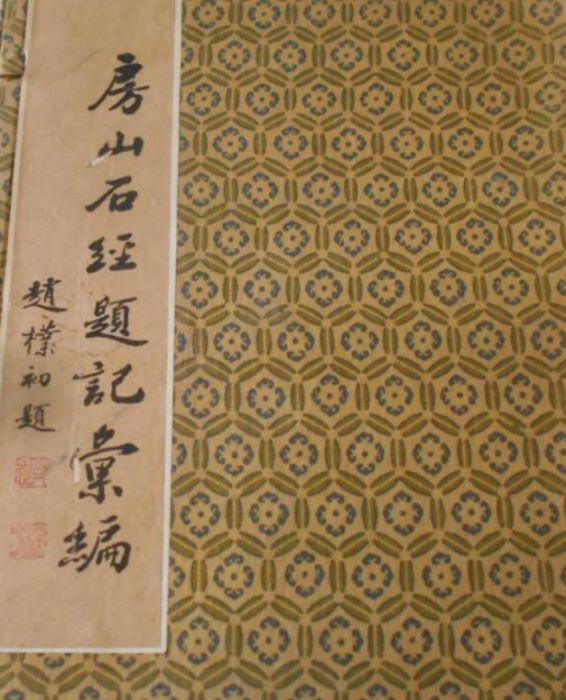 房山石經題記彙編
趙樸初題